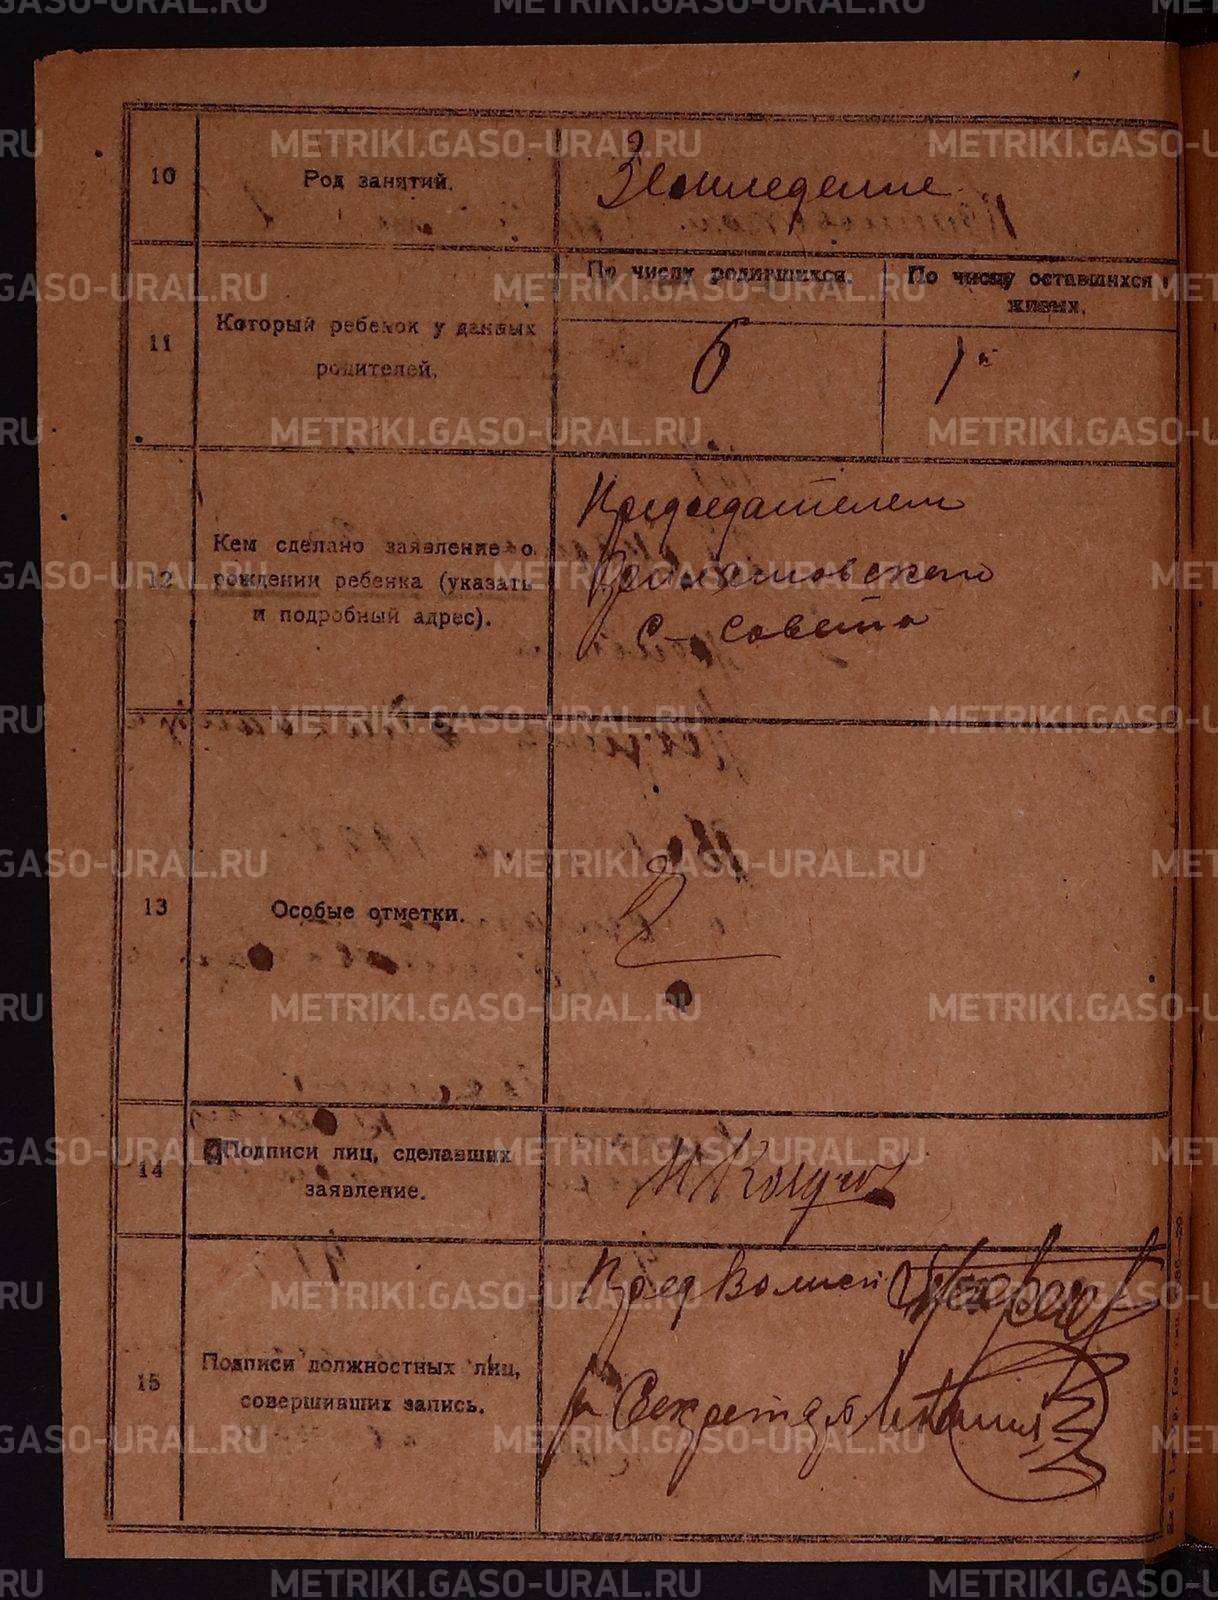 10
Род занятий.
Земледелие
11
Который ребенок у данных
родителей.
По числу родившихся.
По числу оставшихся в
живых.
6
1й
12
Кем сделано заявление о
рождении ребенка (указать
и подробный адрес).
Председателем
С-Совета
13
Особые отметки.
14
Подписи лиц, сделавших
заявление.
15
Подписи должностных лиц,
совершивших запись.
Пред
Секретаря
METRIKI.GASO-URAL.RU